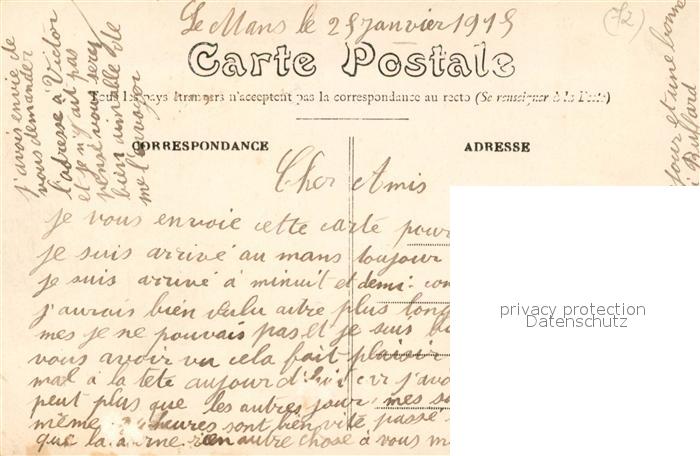 Le Mans le 25 Janvier 1915
72
Carte Postale
Tous les pays étrangers n'acceptent pas la correspondance au recto (Se renseigner à la Poste)
CORRESPONDANCE
ADRESSE
Cher Amis
je vous envoie cette carte pour
je suis arrivé au mans toujour
je suis arrivé à minuit et demi
j'aurais bien plus long
mes je ne pouvais pas et je suis
vous avoir vu cela fait plaisir
mal à la tête aujour d'hui car j'avo
peut plus que les autres jour, mes
même heures sont bien vite passé
que la autre chose à vous m
j'avois envie de
vous demander
l'adresse à Victor
et je n'y ait pas
pensé vous serez
bien aimable de
me l'envoyer
jour et une bonne
privacy protection
Datenschutz